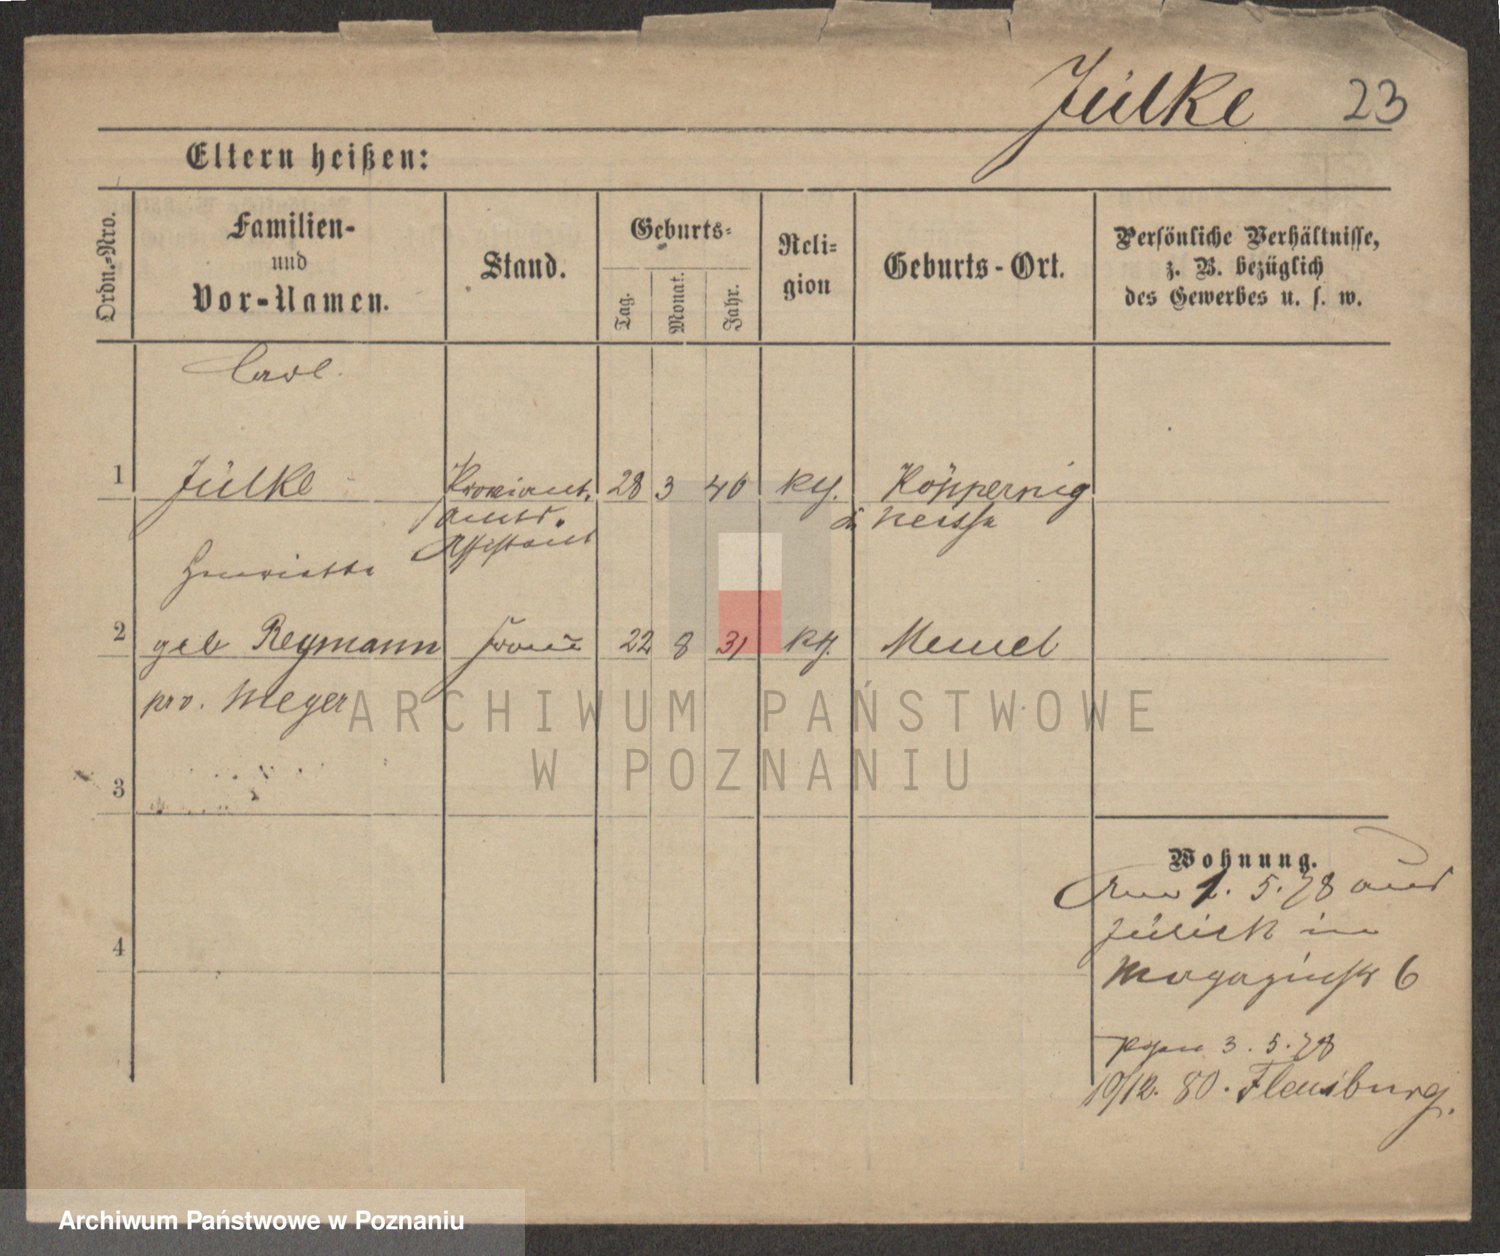 Jülke 23
Eltern heißen:
Ordn.-Nro.
Familien-
und
Vor-Namen.
Stand.
Geburts-
Tag.
Monat.
Jahr.
Reli-
gion
Geburts-Ort.
Persönliche Verhältnisse,
z. B. bezüglich
des Gewerbes u. s. w.
Carl.
1 Jülke Proviant. 28 3 40 kth. Köppernig
Amts. Neisse
Assistent
Henriette
2 geb Regmann Frau 22 8 31 kth. Memel
pro. Meyer
ARCHIWUM PAŃSTWOWE
W POZNANIU
3
Wohnung.
Am 1. 5. 78 aus
Jülich in
4
Magazinstr 6
3. 5. 78
19/12. 80. Flensburg.
Archiwum Państwowe w Poznaniu